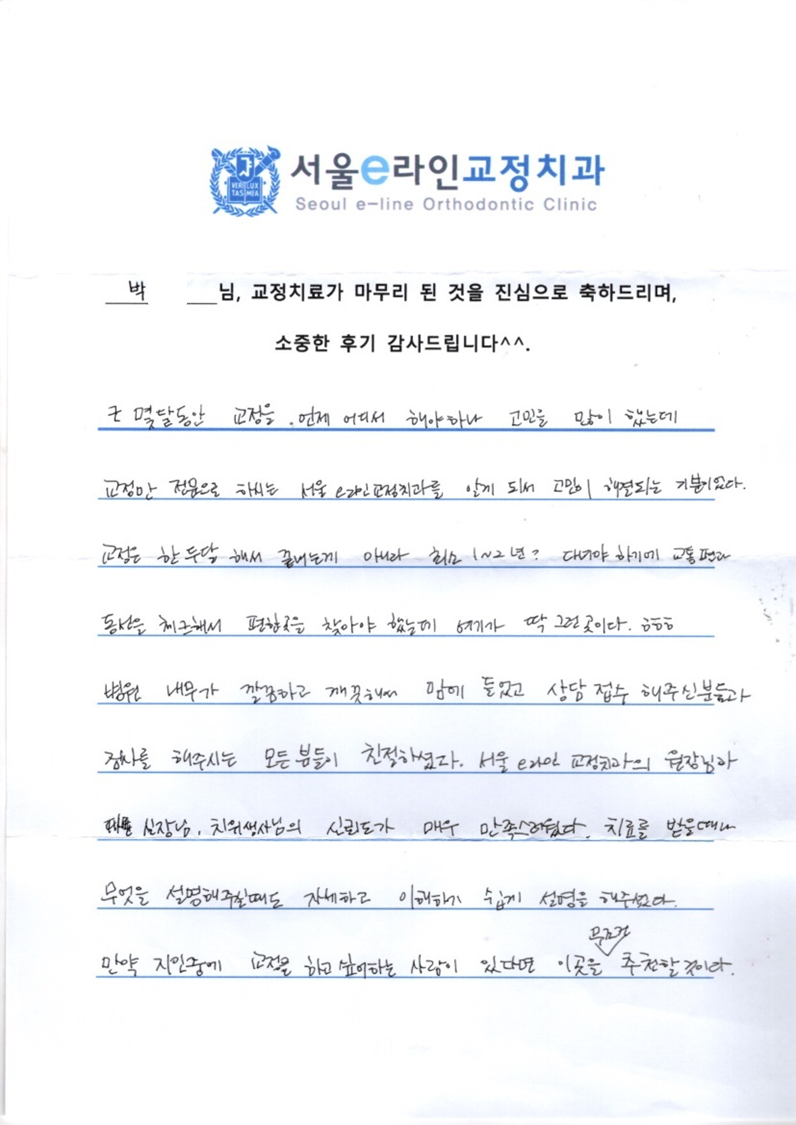 VERI LUX TAS MEA
서울e라인교정치과
Seoul e-line Orthodontic Clinic
박 님, 교정치료가 마무리 된 것을 진심으로 축하드리며,
소중한 후기 감사드립니다^^.
몇달동안 교정을 언제 어디서 해야하나 고민을 많이 했는데
교정만 전문으로 하시는 서울 e라인교정치과를 알게 되서 고민이 해결되는 기분이었다.
교정은 한 두달 해서 끝내는게 아니라 최소 1~2년? 다녀야 하기에 교통편과
동선을 체크해서 편한곳을 찾아야 했는데 여기가 딱 그런곳이다. ㅎㅎㅎ
병원 내부가 깔끔하고 깨끗해서 맘에 들었고 상담 접수 해주신분들과
검사를 해주시는 모든분들이 친절하셨다. 서울 e라인 교정치과의 원장님과
실장님, 치위생사님의 신뢰도가 매우 만족스러웠다. 치료를 받을때나
무엇을 설명해주실때도 자세하고 이해하기 쉽게 설명을 해주셨다.
만약 지인중에 교정을 하고 싶어하는 사람이 있다면 이곳을 무조건 추천할 것이다.